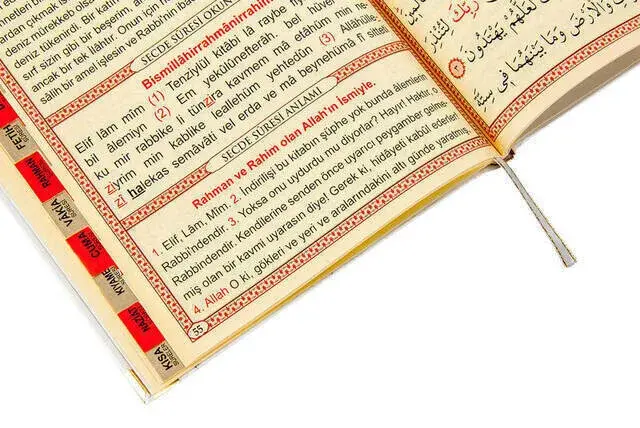 deniz tükenirdi. Bir
sırf sizin gibi bir beşerim,
ancak bir tek ilâhtır. Onun için
sâlih bir amel işlesin ve Rabbi'nin
SECDE SÛRESİ OKUN
Bismillâhirrahmânirrahîm
Elif lâm mîm (1) Tenzîylül kitâbi lâ raybe
bil âlemiyn (2) Em yekûlûnefterâh. bel hüve
ku mir rabbike li tünzira kavmem mâ
ziyrim min kablike leallehüm yehtedûn (3) Allâhülle
zî halekas semâvâti vel erda ve mâ beynehümâ fî
SECDE SÛRESİ ANLAMI
Rahman ve Rahim olan Allah'ın İsmiyle.
1. Elif, Lâm, Mîm. 2. İndirilişi bu kitabın şüphe yok bunda âlemlerin
Rabbi'ndendir. 3. Yoksa onu uydurdu mu diyorlar? Hayır! Haktır, o
Rabbindendir. Kendilerine senden önce uyarıcı peygamber gelme-
miş olan bir kavmi uyarasın diye! Gerek ki, hidâyeti kabûl ederler
4. Allah O ki, gökleri ve yeri ve aralarındakini altı günde yaratmış,
55
FETİH
RAHMAN
VAKIA
CUMA
KIYAME
NAZİAT
KISA
SURELER
رَبِّكَ لِتُنْذِرَ
لَعَلَّهُمْ يَهْتَدُونَ
وَالْأَرْضَ وَمَا بَيْنَهُمَا فِي سِتَّةِ